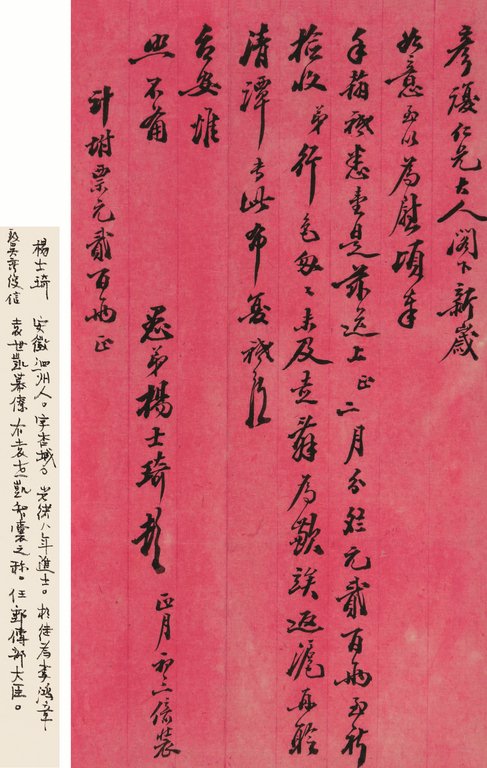 彥復仁兄大人閣下新歲
如意至以為慰頃奉
手翰祗悉壹是茲送上正二月分銀元貳百兩至祈
檢收弟行色匆匆未及走辭為歉俟返滬再聆
清譚專此布复祗頌
台安惟
照不莆
愚弟楊士琦頓 正月初三倚裝
計坿票元貳百兩正
楊士琦 安徽泗州人。字杏城。光緒八年進士。於
袁世凱幕僚 有袁世凱智囊之稱。任郵傳部大臣。
致吳彥復信